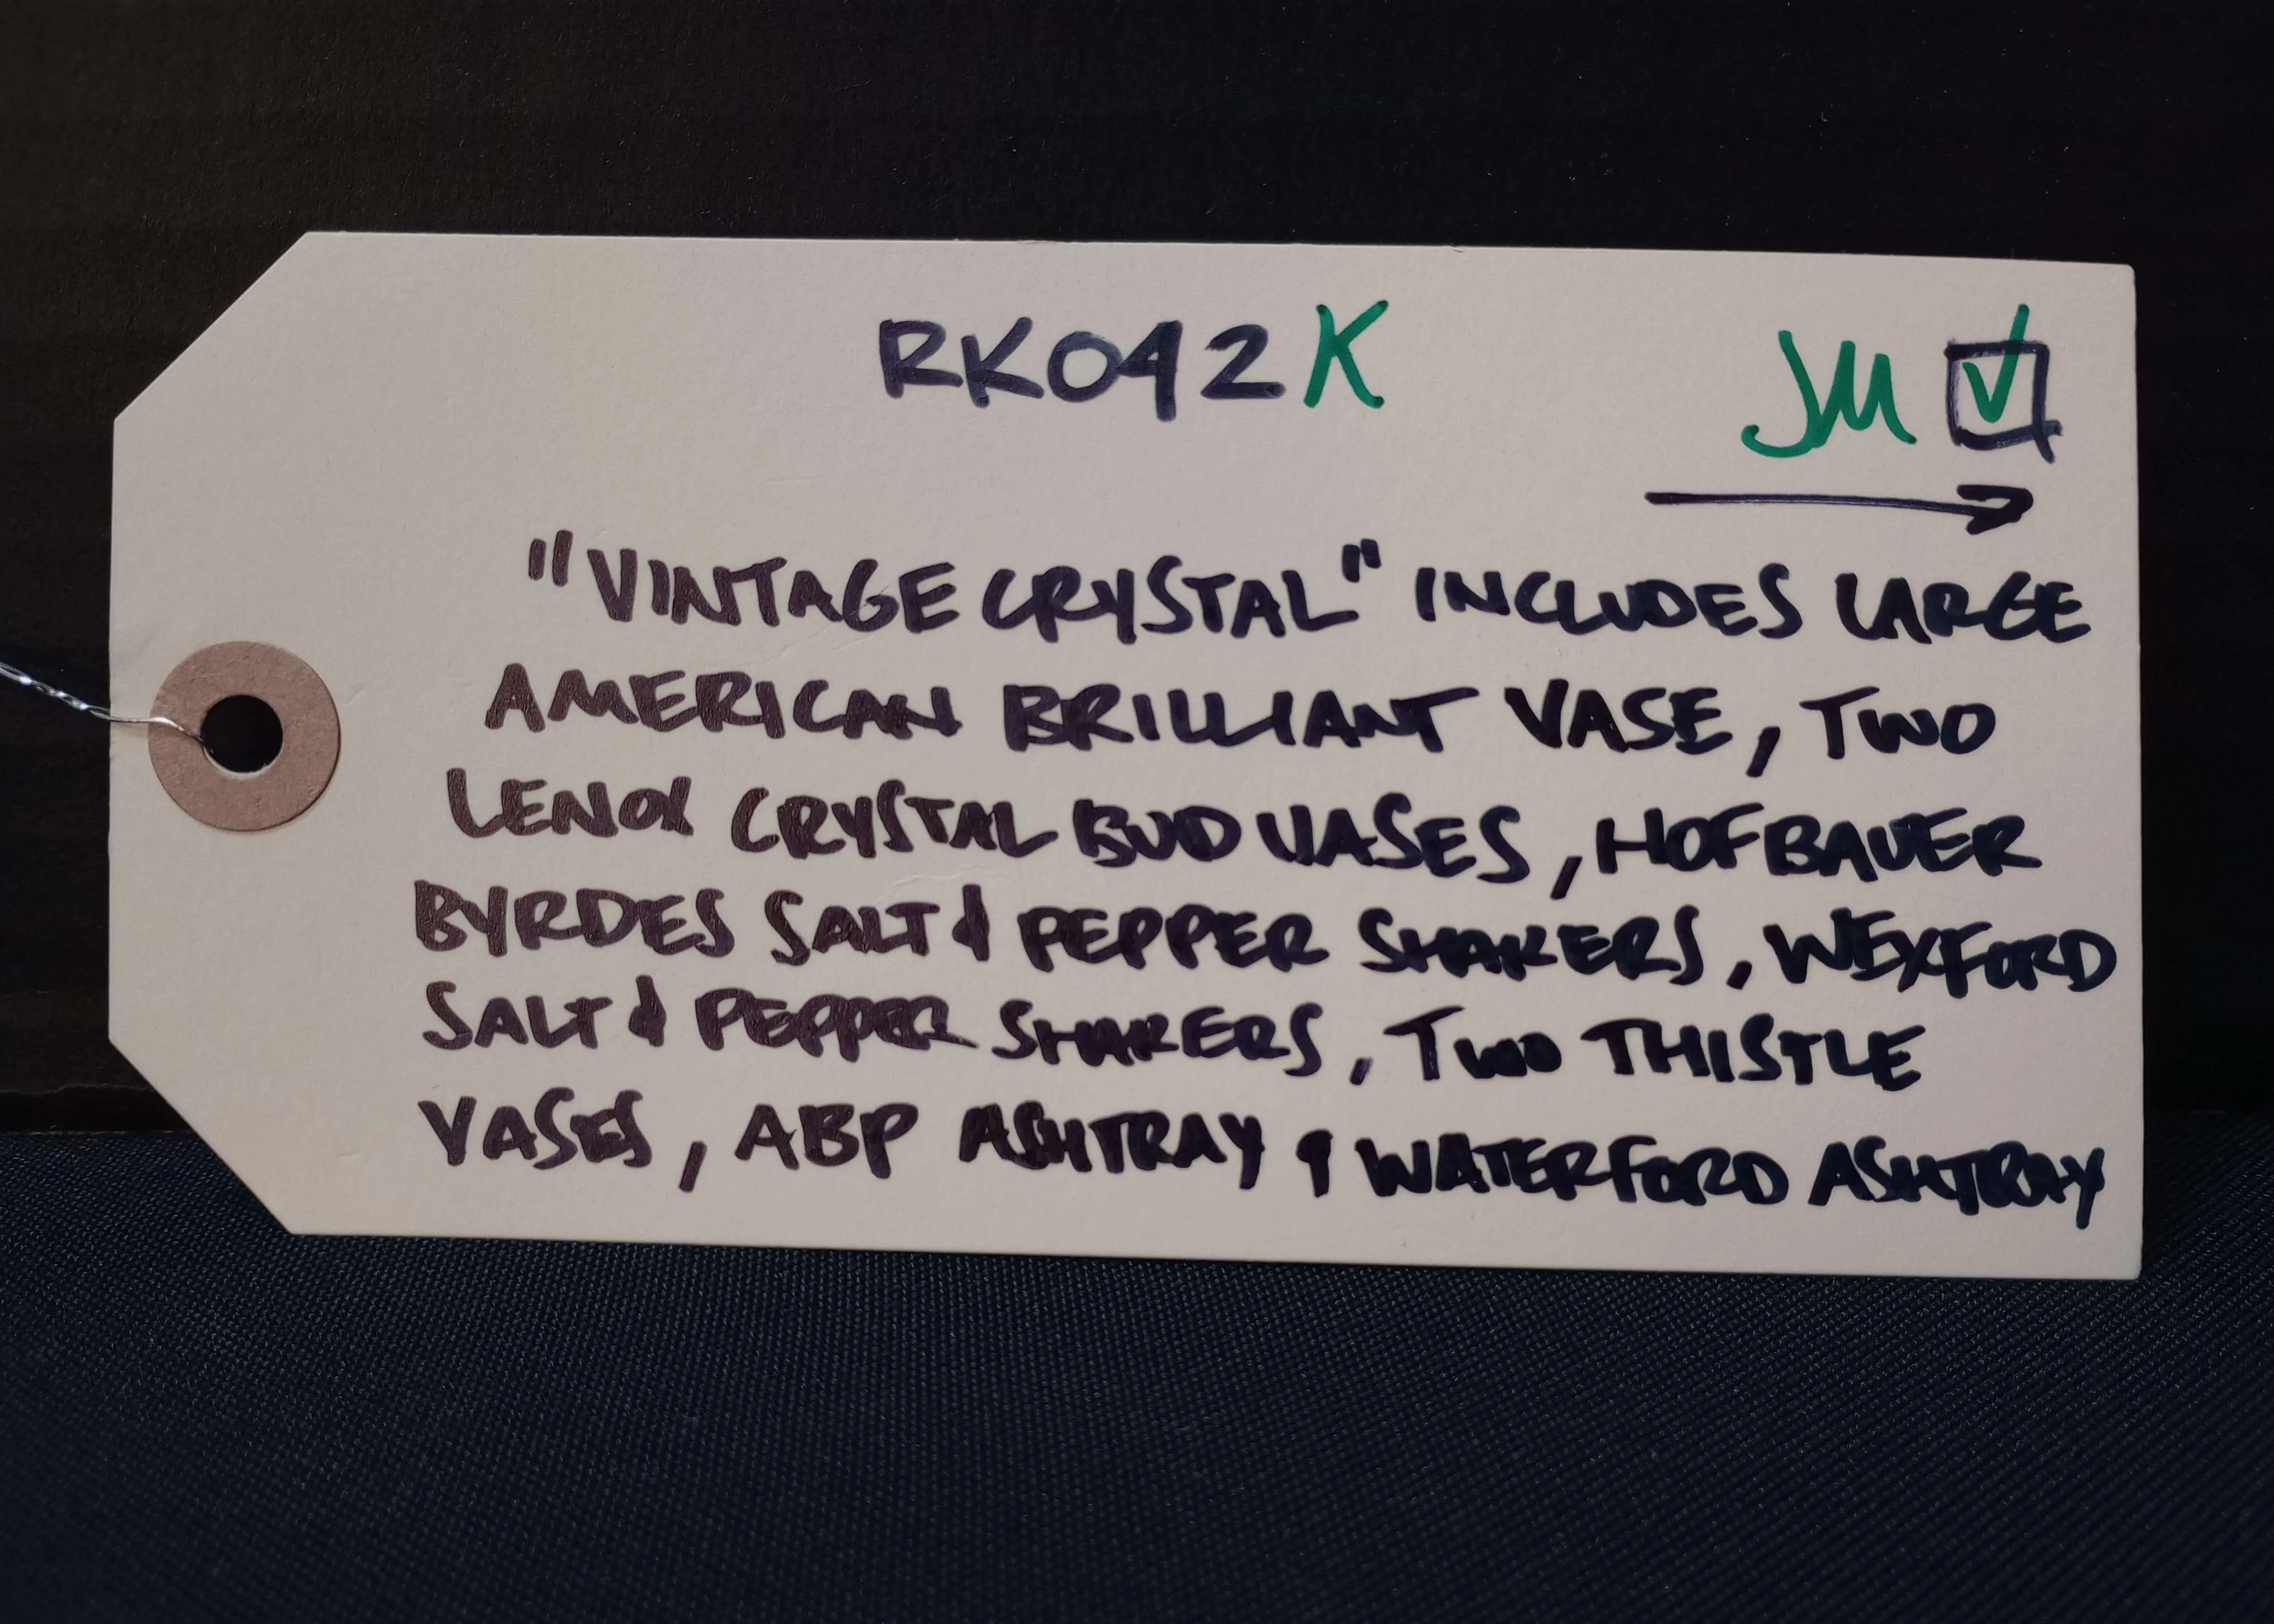 RK042K JM ☑
→
"VINTAGE CRYSTAL" INCLUDES LARGE
AMERICAN BRILLIANT VASE, TWO
LENOX CRYSTAL BUD VASES, HOFBAUER
BYRDES SALT & PEPPER SHAKERS, WEXFORD
SALT & PEPPER SHAKERS, TWO THISTLE
VASES, ABP ASHTRAY & WATERFORD ASHTRAY